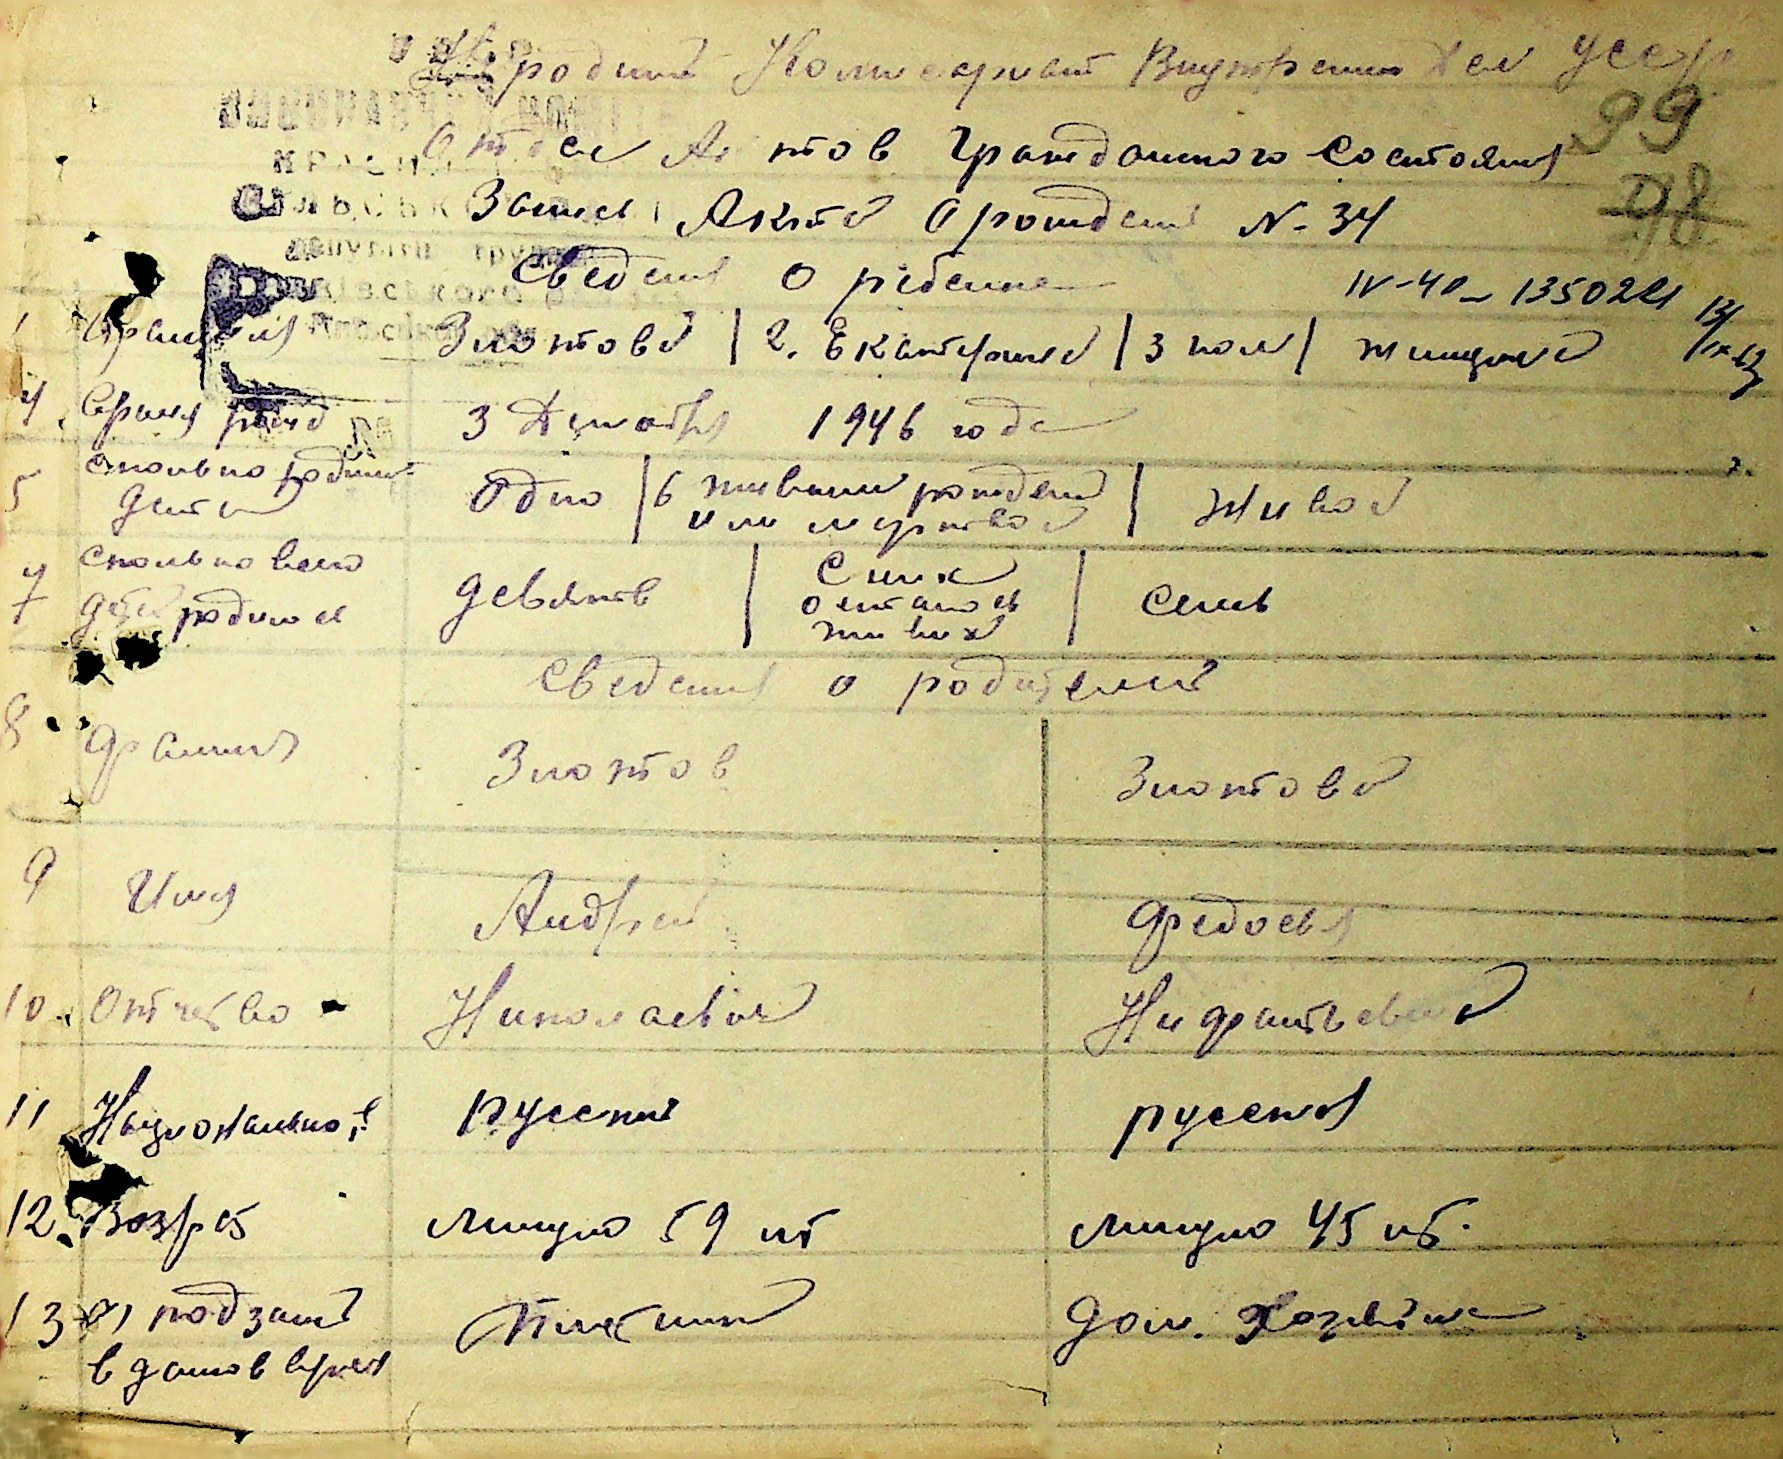 Народний Комисариат Внутрених Дел УССР
99
Отдел Актов Гражданского Состояния
98
Запись Акта О рождени N- 34
Сведения О ребенке
IV-УР-135024
1 Фамилия Злотова | 2. Екатерина | 3 пол | женщина
4 Время рожд 3 Декабря 1946 года
5 сколько родил детей Одно | 6 живыми рожден или мертвой | Живой
7 сколько всего детей родилось девять | С них осталось живих | семь
Сведения о родителей
8 Фамилия Злотов Злотова
9 Имя Андрей Федосья
10. Отчество Николаевич Нифантьевна
11 Национальность русский русская
12. Возраст Минуло 59 лет минуло 45 лет.
13 а) род занят в данов время Плотник Дом. Хозяйка